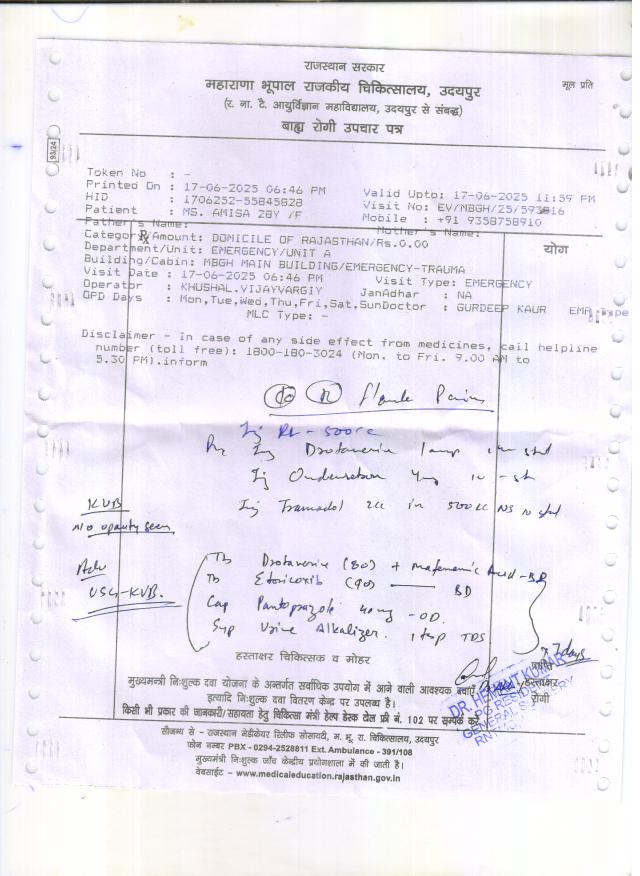 राजस्थान सरकार
महाराणा भूपाल राजकीय चिकित्सालय, उदयपुर
मूल प्रति
(र. ना. टै. आयुर्विज्ञान महाविद्यालय, उदयपुर से संबद्ध)
बाह्य रोगी उपचार पत्र
93/24
Token No : -
Printed On : 17-06-2025 06:46 PM Valid Upto: 17-06-2025 11:59 PM
HID : 1706252-55845828 Visit No: EV/NBGH/25/593816
Patient : MS. AMISA 28Y /F Mobile : +91 9358758910
Father's Name: Mother's Name:
Category/Amount: DOMICILE OF RAJASTHAN/Rs.0.00
Rx
योग
Department/Unit: EMERGENCY/UNIT A
Building/Cabin: MBGH MAIN BUILDING/EMERGENCY-TRAUMA
Visit Date : 17-06-2025 06:46 PM Visit Type: EMERGENCY
Operator : KHUSHAL.VIJAYVARGIY JanAdhar : NA
OPD Days : Mon,Tue,Wed,Thu,Fri,Sat,Sun Doctor : GURDEEP KAUR
MLC Type: -
Disclaimer - In case of any side effect from medicines, call helpline
number (toll free): 1800-180-3024 (Mon. to Fri. 9.00 AM to
5.30 PM).inform
c/o (R) flank Pain
Inj RL - 500cc
Rx Inj Drotaverin 1amp stat
Inj Ondansetron 4mg iv - st
Inj Tramadol 2cc in 500cc NS iv stat
KUB
N/O opacity seen
Adv
USG-KUB.
Tb Drotaverine (80) + Mefenamic Acid - BD
Tb Etoricoxib (90) — BD
Cap Pantoprazole 40mg - OD.
Syp Urine Alkalizer. 1 tsp TDS
x 7 days
हस्ताक्षर चिकित्सक व मोहर
हस्ताक्षर
रोगी
DR. HEMANT KUMAR
GENERAL SURGERY
मुख्यमन्त्री निःशुल्क दवा योजना के अन्तर्गत सर्वाधिक उपयोग में आने वाली आवश्यक दवाएं
इत्यादि निःशुल्क दवा वितरण केन्द्र पर उपलब्ध है।
किसी भी प्रकार की जानकारी/सहायता हेतु चिकित्सा मंत्री हेल्प डेस्क टोल फ्री नं. 102 पर सम्पर्क करें
सौजन्य से - राजस्थान मेडीकेयर रिलीफ सोसायटी, म. भू. रा. चिकित्सालय, उदयपुर
फोन नम्बर PBX - 0294-2528811 Ext. Ambulance - 391/108
मुख्यमन्त्री निःशुल्क जाँच केन्द्रीय प्रयोगशाला में की जाती है।
वेबसाईट - www.medicaleducation.rajasthan.gov.in